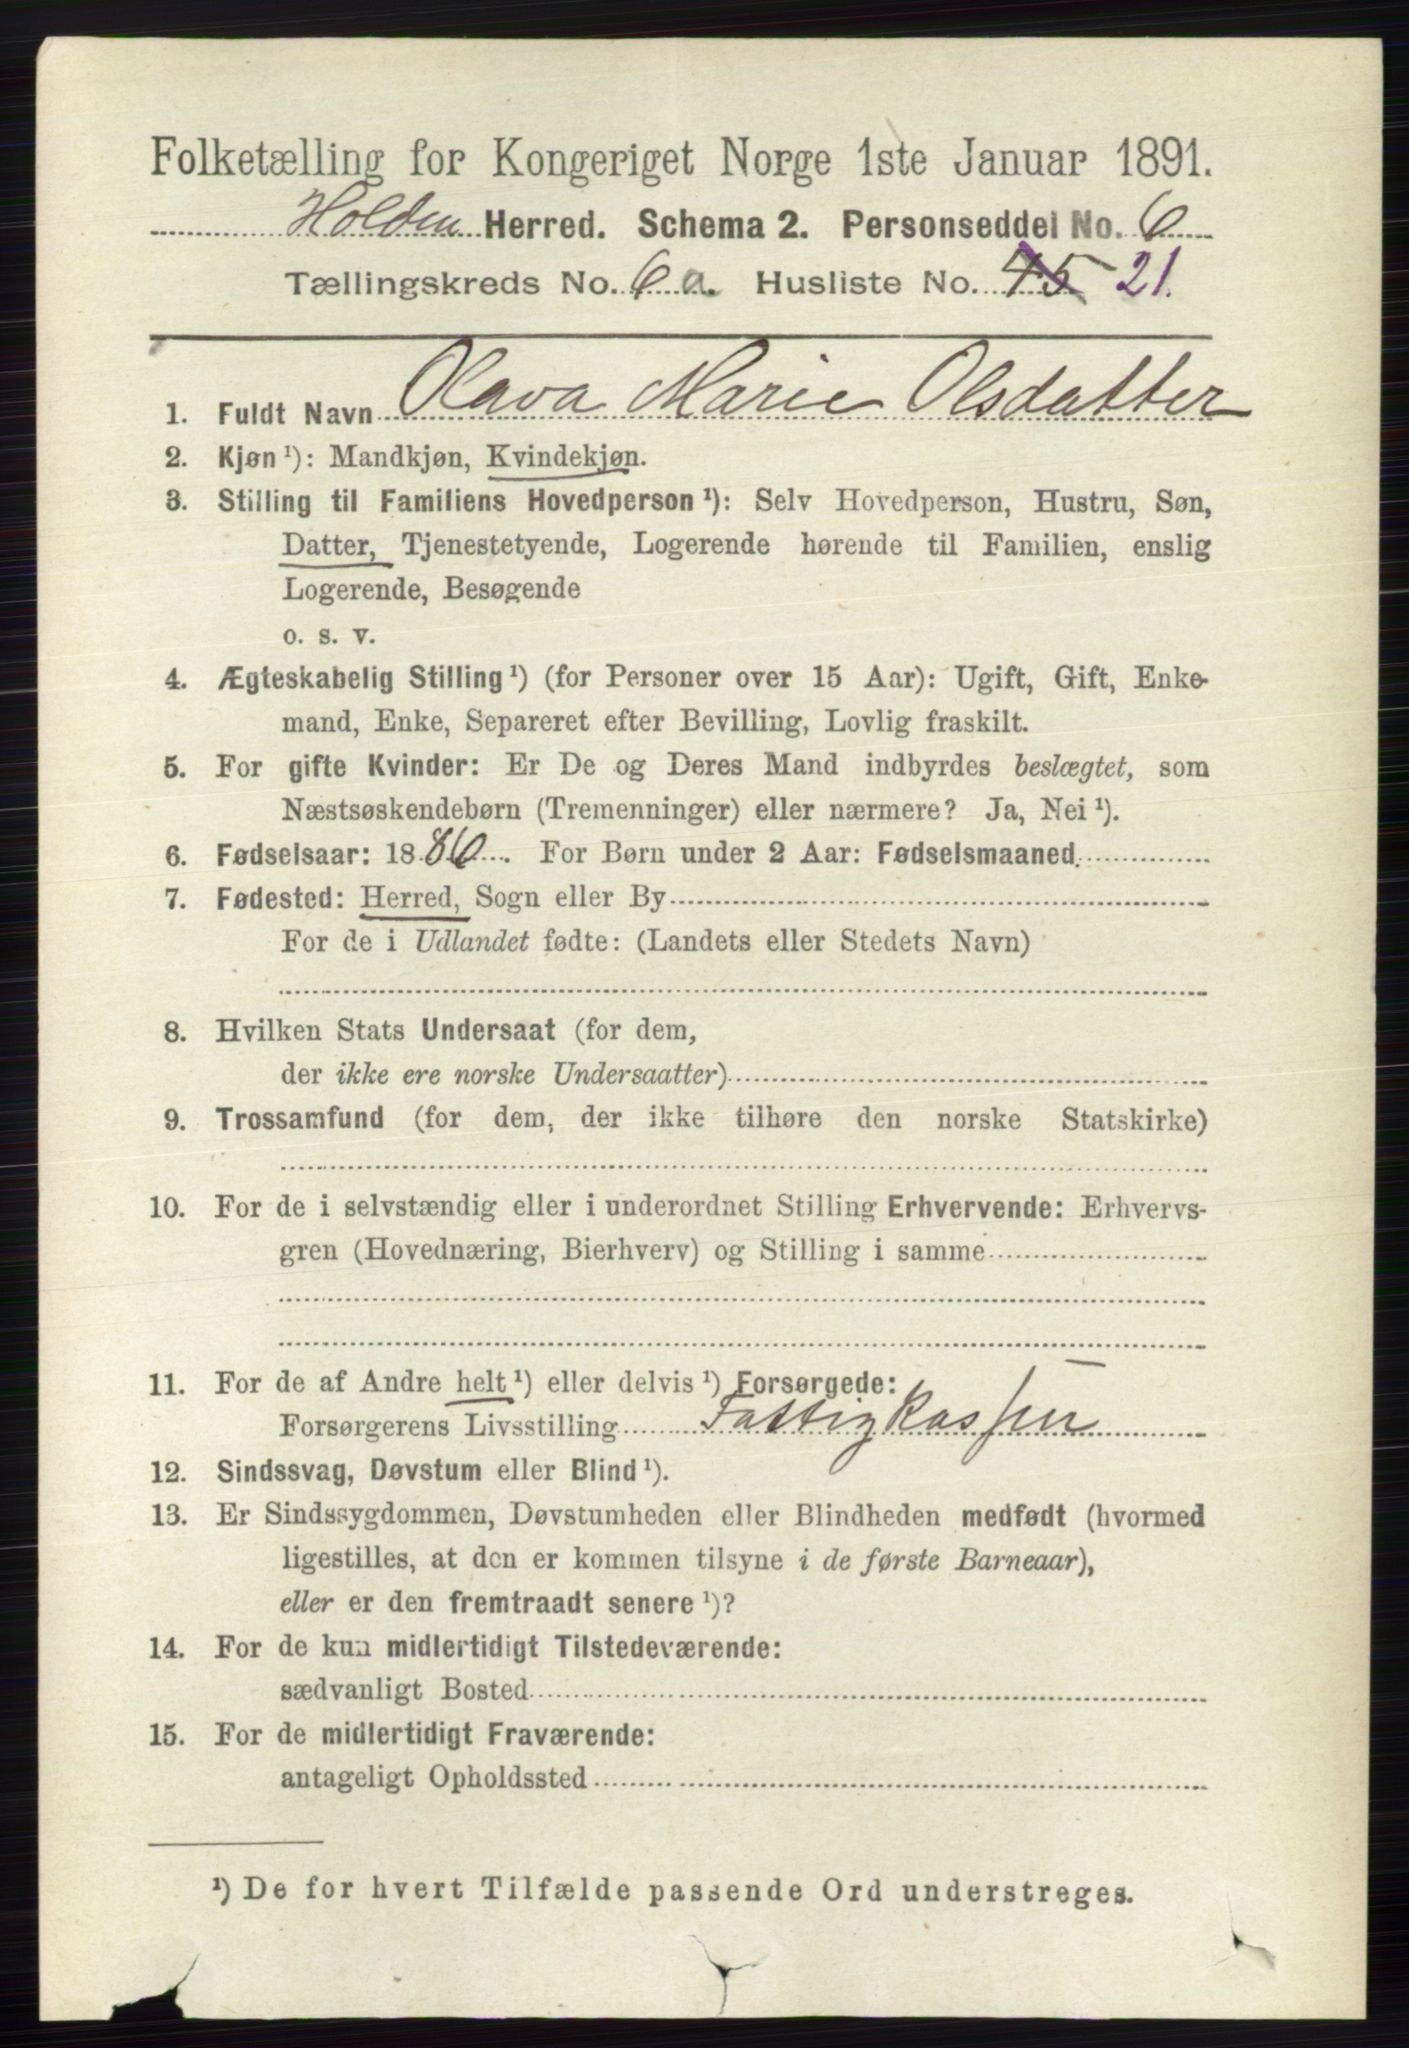 Folketælling for Kongeriget Norge 1ste Januar 1891.
Holden Herred. Schema 2. Personseddel No. 6
Tællingskreds No. 6 a. Husliste No. 45 21.
1. Fuldt Navn Olava Marie Olsdatter
2. Kjøn ¹): Mandkjøn, Kvindekjøn.
3. Stilling til Familiens Hovedperson ¹): Selv Hovedperson, Hustru, Søn,
Datter, Tjenestetyende, Logerende hørende til Familien, enslig
Logerende, Besøgende
o. s. v.
4. Ægteskabelig Stilling ¹) (for Personer over 15 Aar): Ugift, Gift, Enke-
mand, Enke, Separeret efter Bevilling, Lovlig fraskilt.
5. For gifte Kvinder: Er De og Deres Mand indbyrdes beslægtet, som
Næstsøskendebørn (Tremenninger) eller nærmere? Ja, Nei ¹).
6. Fødselsaar: 1886. For Børn under 2 Aar: Fødselsmaaned
7. Fødested: Herred, Sogn eller By
For de i Udlandet fødte: (Landets eller Stedets Navn)
8. Hvilken Stats Undersaat (for dem,
der ikke ere norske Undersaatter)
9. Trossamfund (for dem, der ikke tilhøre den norske Statskirke)
10. For de i selvstændig eller i underordnet Stilling Erhvervende: Erhvervs-
gren (Hovednæring, Bierhverv) og Stilling i samme
11. For de af Andre helt ¹) eller delvis ¹) Forsørgede:
Forsørgerens Livsstilling Fattigkassen
12. Sindssvag, Døvstum eller Blind ¹).
13. Er Sindssygdommen, Døvstumheden eller Blindheden medfødt (hvormed
ligestilles, at den er kommen tilsyne i de første Barneaar),
eller er den fremtraadt senere ¹)?
14. For de kun midlertidigt Tilstedeværende:
sædvanligt Bosted
15. For de midlertidigt Fraværende:
antageligt Opholdssted
¹) De for hvert Tilfælde passende Ord understreges.